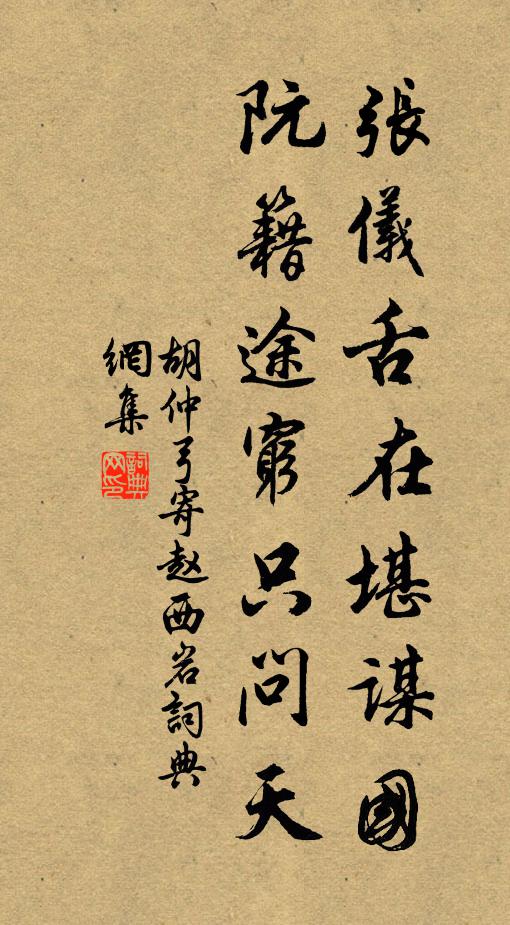 張儀舌在堪謀國
阮籍途窮只問天
胡仲弓寄赵西岩詞典
網集
詞典網印